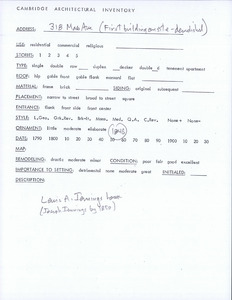 CAMBRIDGE ARCHITECTURAL INVENTORY
ADDRESS: 318 Mass Ave (First building on site - demolished)
USE: residential commercial religious
STORIES: 1 2 3 4 5
TYPE: single double row duplex decker double d tenement apartment
ROOF: hip gable front gable flank mansard flat
MATERIAL: frame brick SIDING: original subsequent
PLACEMENT: narrow to street broad to street square
ENTRANCE: flank front side front center
STYLE:
ORNAMENT: little moderate elaborate 1845
DATE: 1790 1800 10 20 30 40 50 60 70 80 90 1900 10 20 30
MAP:
REMODELING: drastic moderate minor CONDITION: poor fair good excellent
IMPORTANCE TO SETTING: detrimental none moderate great INITIALED:
DESCRIPTION:
Louis A. Jennings house
(Jacob Jennings by 1854)